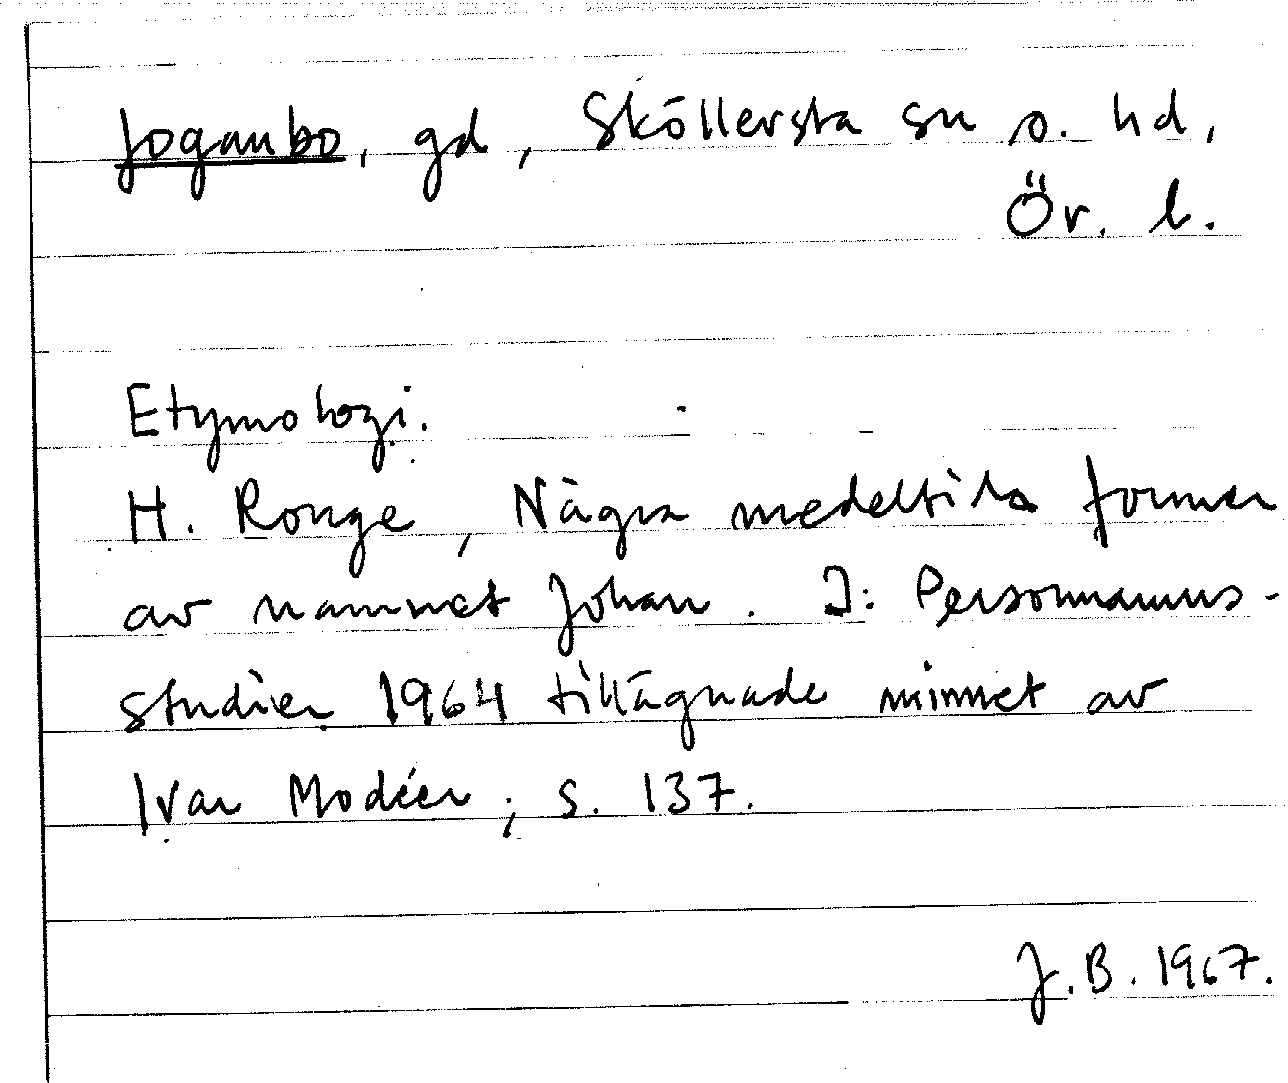 Joganbo, gd, Sköllersta sn o. hd,
Ör. l.
Etymologi.
H. Ronge, Några medeltida former
av namnet Johan. I: Personnamns-
studier 1964 tillägnade minnet av
Ivar Modéer; s. 137.
J.B. 1967.